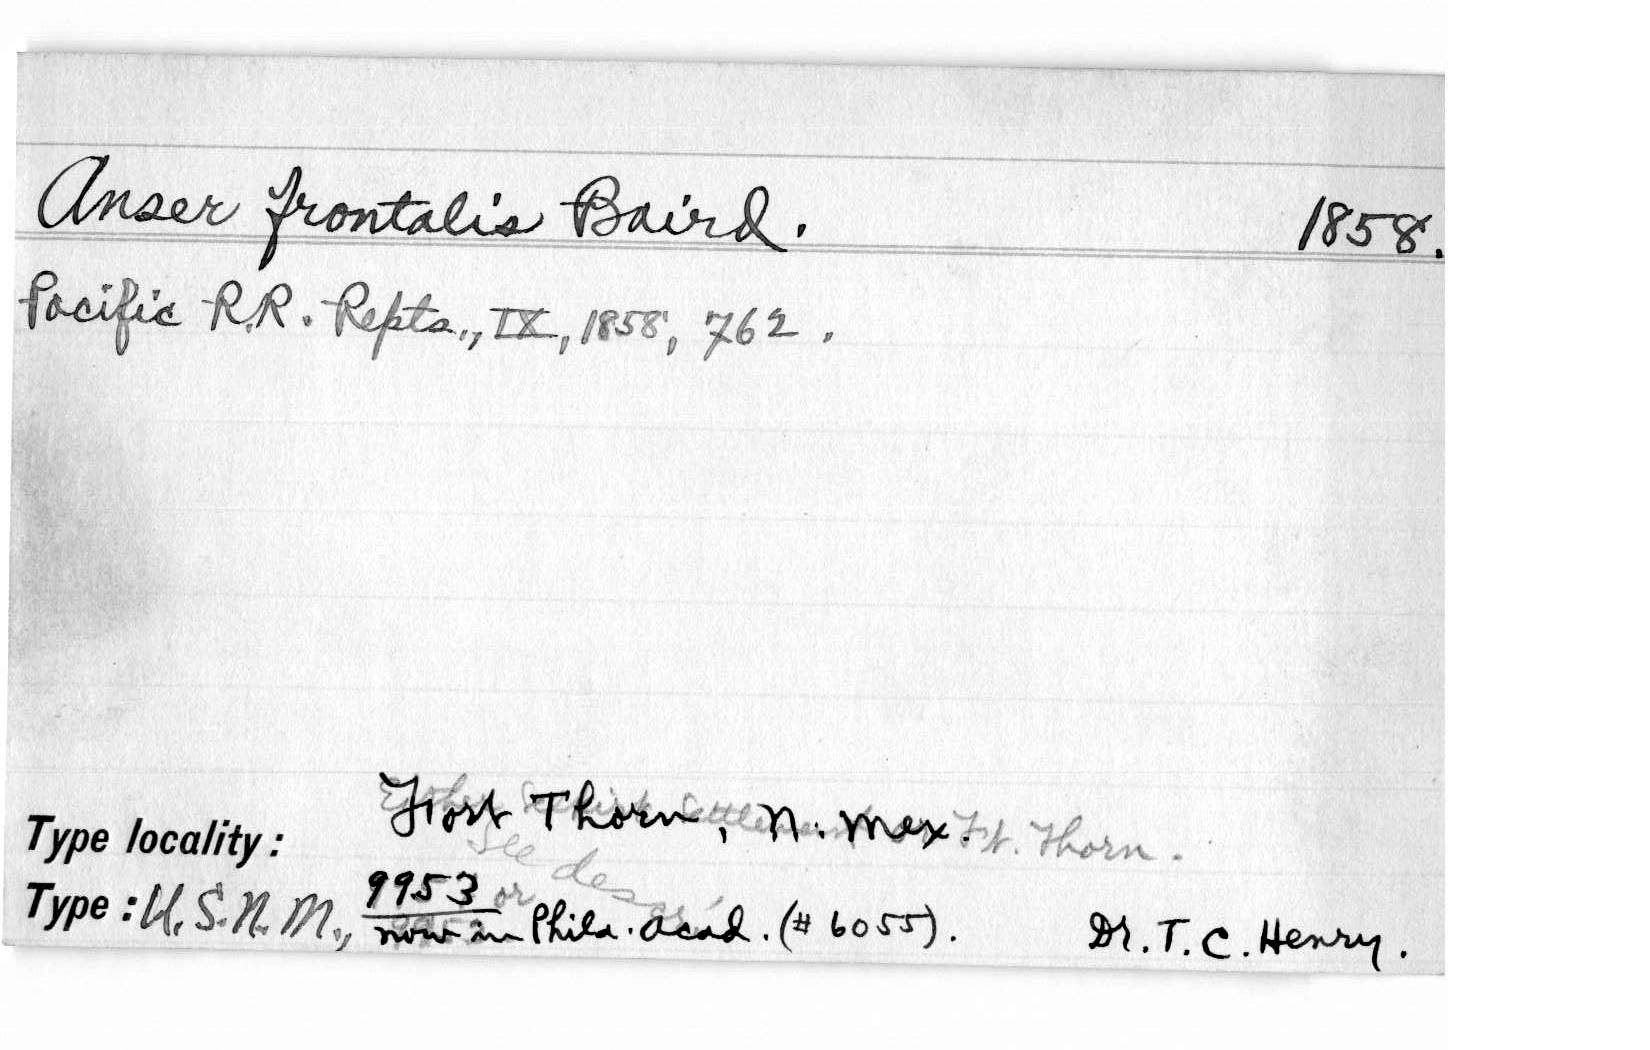 Anser frontalis Baird. 1858.
Pacific R.R. Repts., IX, 1858, 762.
Type locality: Fort Thorn, N. Mex. Ft. Thorn.
See des
Type: U.S.N.M., 9953 or
now in Phila. Acad. (# 6055). Dr. T. C. Henry.